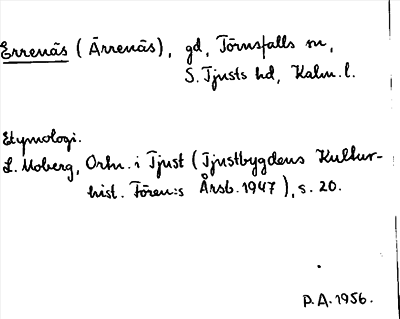 Errenäs (Ärrenäs), gd, Törnsfalls sn,
S. Tjusts hd, Kalm. l.
Etymologi.
L. Moberg, Ortn. i Tjust (Tjustbygdens Kultur-
hist. Fören:s Årsb. 1947), s. 20.
P.A. 1956.